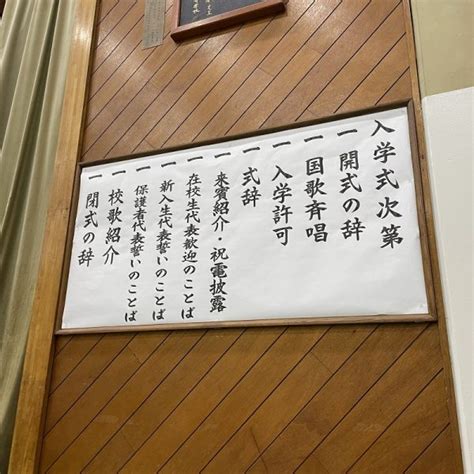 入学式次第
一 開式の辞
一 国歌斉唱
一 入学許可
一 式辞
一 来賓紹介・祝電披露
一 在校生代表歓迎のことば
一 新入生代表誓いのことば
一 保護者代表誓いのことば
一 校歌紹介
一 閉式の辞